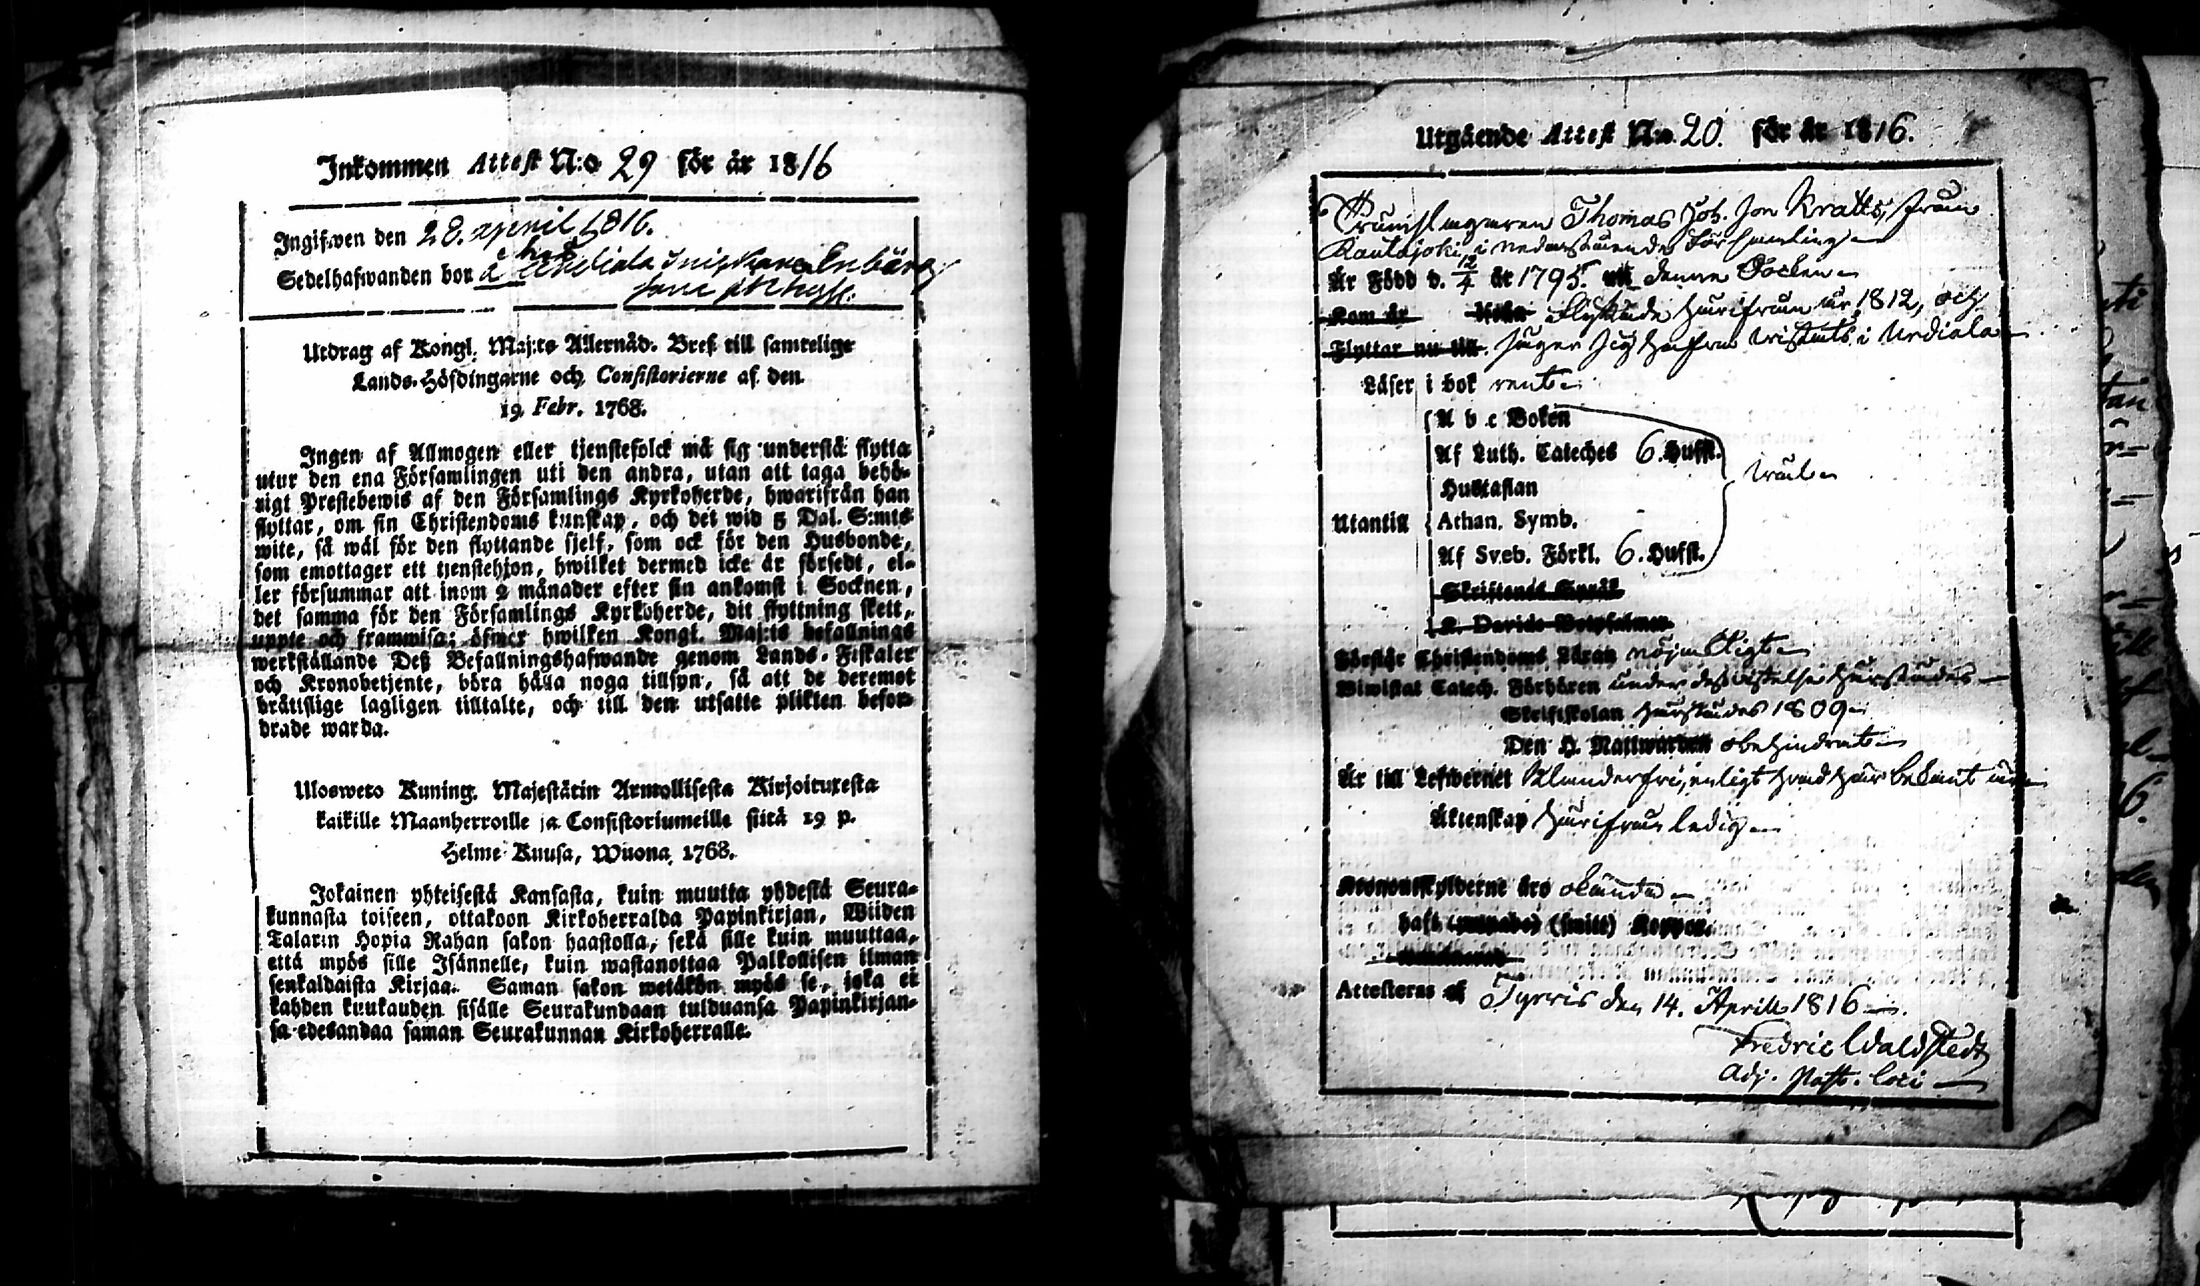 Inkommen Attest N:o 29 för år 1816
Ingifwen den 28. april 1816.
Sedelhafwanden bor
Utdrag af Kongl. Maj:ts Allernåd. Bref till samtelige
Lands-Höfdingarne och Consistorierne af den
19. Febr. 1768.
Ingen af Allmogen eller tjenstefolck må sig understå flytta
utur den ena Församlingen uti den andra, utan att taga behö-
rigt Prestebewis af den Församlings Kyrkoherde, hwarifrån han
flyttar, om sin Christendoms kunskap, och det wid 5 Dal. S:mts
wite, så wäl för den flyttande sjelf, som ock för den Husbonde,
som emottager ett tjenstehjon, hwilket dermed icke är försedt, el-
ler försummar att inom 2 månader efter sin ankomst i Socknen,
det samma för den Församlings Kyrkoherde, dit flyttning skett,
uppte och framwisa; öfwer hwilken Kongl. Maj:ts befallnings
werkställande Deß Befallningshafwande genom Lands-Fiskaler
och Kronobetjente, böra hålla noga tillsyn, så att de deremot
brättslige lagligen tilltalte, och till den utsatte plikten befor-
drade warda.
Uloswето Kuning. Majestätin Armollisesta Kirjoituxesta
kaikille Maanherroille ja Consistoriumeille siitä 19 p.
Helme-Kuusa, Wuona 1768.
Jokainen yhteisestä Kansasta, kuin muutta yhdestä Seura-
kunnasta toiseen, ottakoon Kirkoherralda Papinkirjan, Wiiden
Talarin Hopia Rahan sakon haastolla, sekä sille kuin muuttaa,
että myös sille Isännelle, kuin wastanottaa Palkollisen ilman
senkaldaista Kirjaa. Saman sakon wetäkön myös se, joka ei
kahden kuukauden sisälle Seurakundaan tulduansa Papinkirjan-
sa edesandaa saman Seurakunnan Kirkoherralle.
Utgående Attest N:o 20. för år 1816.
Thomas Joh. Son Kratts, från
Kaulajoki i nedanstående Församling
Är Född d. 12/4 år 1795. denne Socken
Kom år ifrån Flyttade härifrån år 1812, och
Flyttar nu till. säger sig hafva vistats i Urdiala
Läser i bok rent
A b c Boken
Af Luth. Cateches 6. Hufst.
Hustaflan
Utantill Athan. Symb.
Af Sveb. Förkl. 6. Hufst.
Skriftenes Språk
K. Davids Botpsalmer
Förstår Christendoms Läran nöjaktigt
Biwistat Catech. Förhören under deß vistelse härstädes
Skriftskolan härstädes 1809
Den H. Nattwarden obehindrat
Är till Lefwernet klanderfri, enligt hvad här bekant är
Äktenskap härifrån ledig
Kronoutskylderne äro okända
haft (smitt) Koppor.
Attesteras af Tyrvis den 14. Aprill 1816
Fredric Waldstedt
Adj. Past. loci